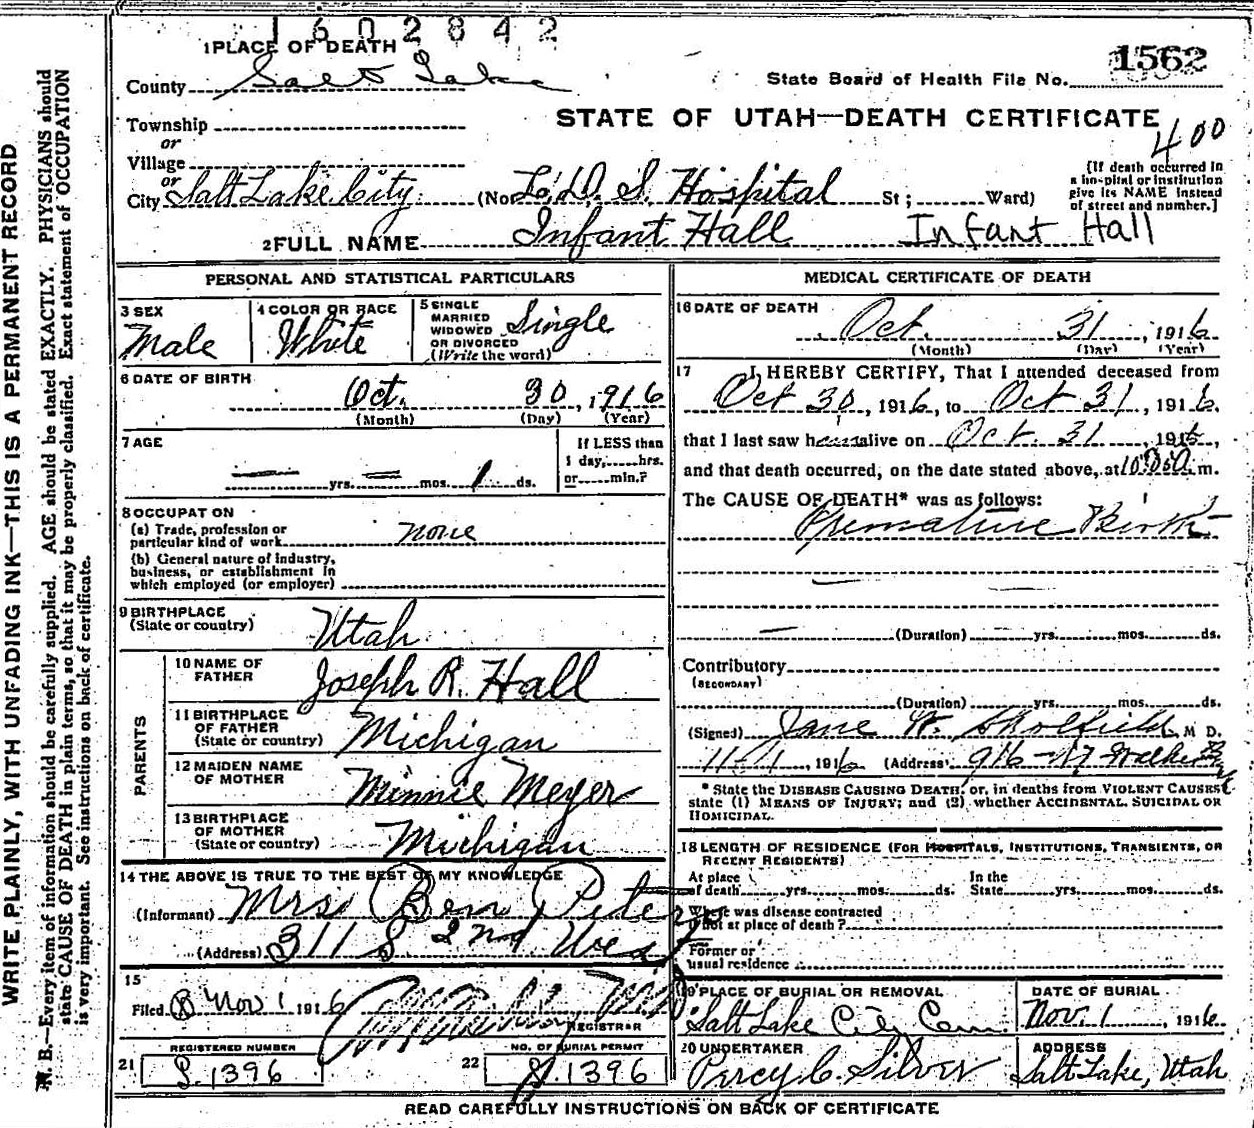 1602842
1 PLACE OF DEATH
County Salt Lake
State Board of Health File No. 1562
STATE OF UTAH—DEATH CERTIFICATE
400
Township
or
Village
or
City Salt Lake City (No L.D.S. Hospital St; Ward)
[If death occurred in
a hospital or institution
give its NAME instead
of street and number.]
2 FULL NAME Infant Hall Infant Hall
PERSONAL AND STATISTICAL PARTICULARS
3 SEX Male
4 COLOR OR RACE White
5 SINGLE
MARRIED
WIDOWED
OR DIVORCED
(Write the word) Single
6 DATE OF BIRTH
Oct. 30, 1916
(Month) (Day) (Year)
7 AGE
— yrs. — mos. 1 ds.
If LESS than
1 day, hrs.
or min.?
8 OCCUPATION
(a) Trade, profession or
particular kind of work none
(b) General nature of industry,
business, or establishment in
which employed (or employer)
9 BIRTHPLACE
(State or country) Utah
PARENTS
10 NAME OF
FATHER Joseph R. Hall
11 BIRTHPLACE
OF FATHER
(State or country) Michigan
12 MAIDEN NAME
OF MOTHER Minnie Meyer
13 BIRTHPLACE
OF MOTHER
(State or country) Michigan
14 THE ABOVE IS TRUE TO THE BEST OF MY KNOWLEDGE
(Informant) Mrs Ben Peters
(Address) 311 S 2nd West
15
Filed Nov 1 1916
REGISTRAR
REGISTERED NUMBER
21 S.1396
NO. OF BURIAL PERMIT
22 S.1396
MEDICAL CERTIFICATE OF DEATH
16 DATE OF DEATH
Oct. 31, 1916
(Month) (Day) (Year)
17 I HEREBY CERTIFY, That I attended deceased from
Oct 30, 1916, to Oct 31, 1916.
that I last saw alive on Oct. 31, 1916,
and that death occurred, on the date stated above, at m.
The CAUSE OF DEATH* was as follows:
Premature Birth
(Duration) yrs. mos. ds.
Contributory
(SECONDARY)
(Duration) yrs. mos. ds.
(Signed) Jane W. M D.
11-1, 1916 (Address) 916-17 Walker
* State the DISEASE CAUSING DEATH, or, in deaths from VIOLENT CAUSES
state (1) MEANS OF INJURY; and (2) whether ACCIDENTAL, SUICIDAL OR
HOMICIDAL.
18 LENGTH OF RESIDENCE (FOR HOSPITALS, INSTITUTIONS, TRANSIENTS, OR
RECENT RESIDENTS)
At place
of death yrs. mos. ds.
In the
State yrs. mos. ds.
Where was disease contracted
if not at place of death?
Former or
usual residence
19 PLACE OF BURIAL OR REMOVAL
Salt Lake City Cem
DATE OF BURIAL
Nov. 1, 1916
20 UNDERTAKER
Percy C. Silver
ADDRESS
Salt Lake, Utah
READ CAREFULLY INSTRUCTIONS ON BACK OF CERTIFICATE
WRITE PLAINLY, WITH UNFADING INK—THIS IS A PERMANENT RECORD
N. B.—Every item of information should be carefully supplied. AGE should be stated EXACTLY. PHYSICIANS should
state CAUSE OF DEATH in plain terms, so that it may be properly classified. Exact statement of OCCUPATION
is very important. See instructions on back of certificate.